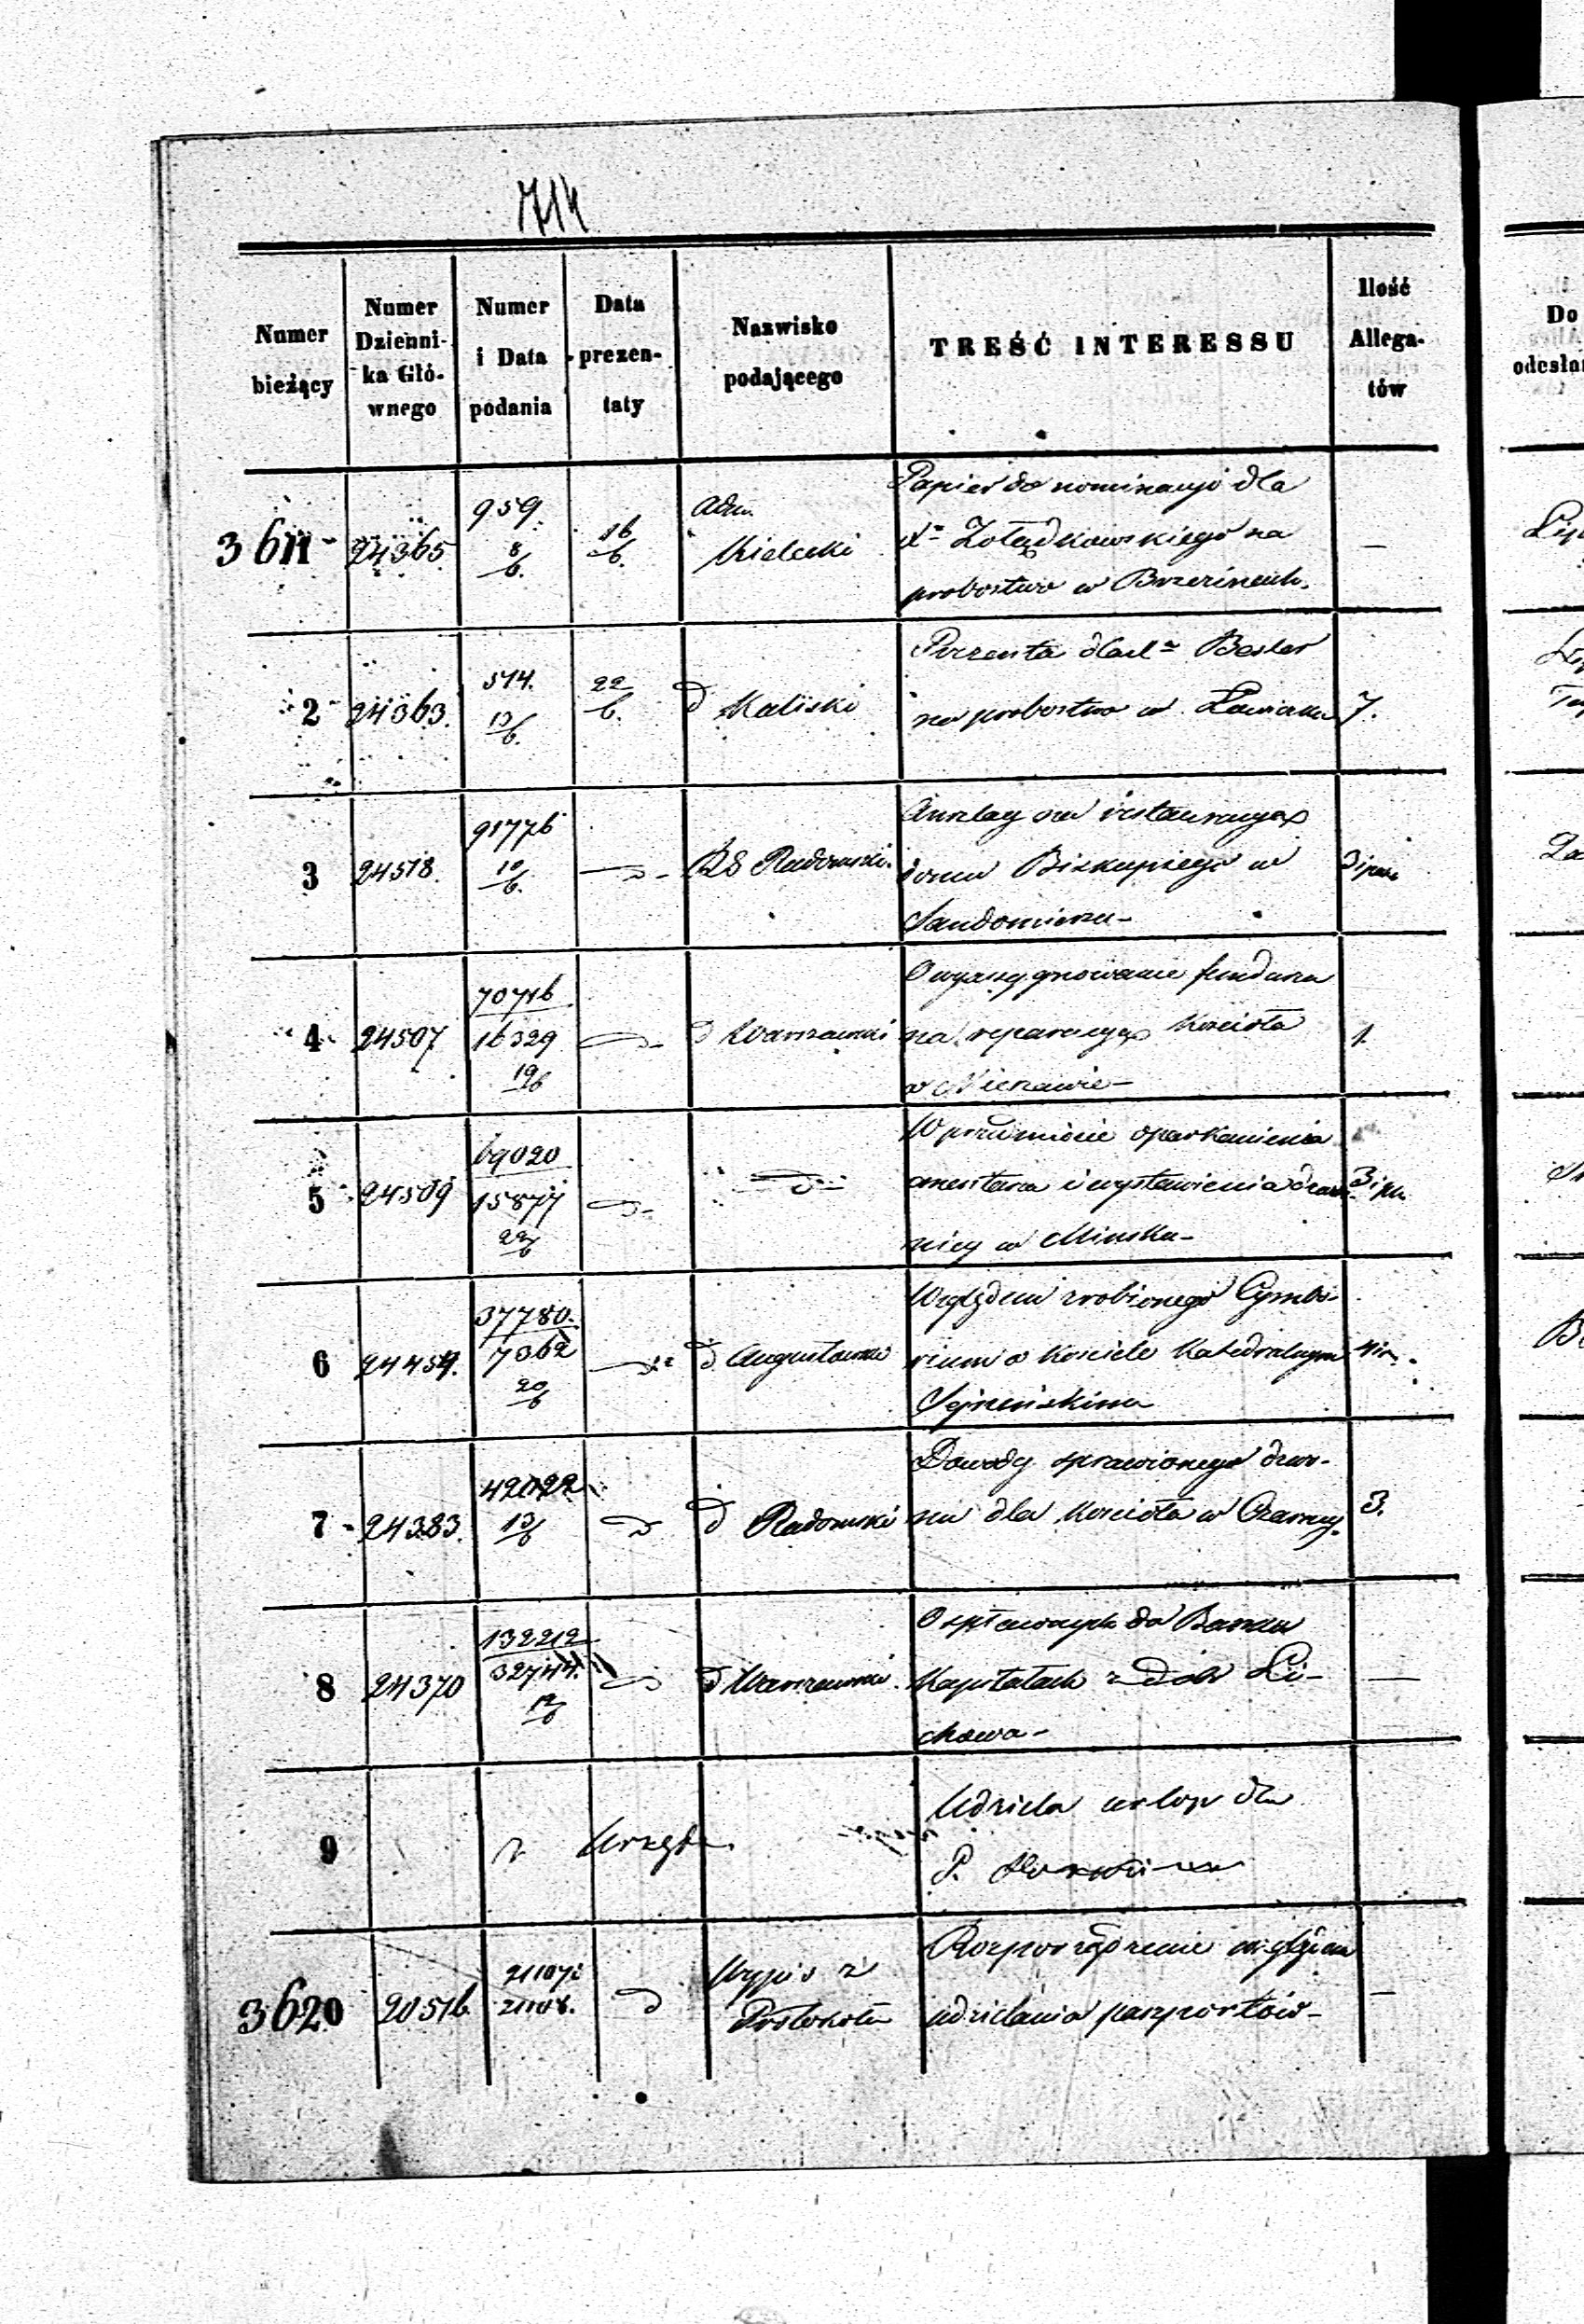 714
Numer bieżący
Numer Dzienni- ka Głó- wnego
Numer i Data podania
Data prezen- taty
Nazwisko podającego
TREŚĆ INTERESSU
Ilość Allega- tów
Do
3611 24365 959. 8/6. 16/6. Adm. Kielecki
Papier do nominacyi dla
Xa Żołądkowskiego na
probostwo w Brzezinach. —
2 24363. 574. 13/6. 22/6. d Kaliski
Prezenta dla Xa Besler
na probostwo w 7.
3 24518. 91776 10/6. —d- RG Radomski.
Anszlag na restauracyą
domu Biskupiego w
Sandomierzu—
4 24507 70716 16329 19/6 d- d Warszawski
O wyassygnowanie fundusz
na reparacyą Kościoła
w 1
5 24509 69020 15877 22/6 d- —d—
W przedmiocie oparkanienia
cmentarza i wystawienia dzwon-
nicy w Mińsku— 3 i
6 24459. 37780. 7362 20/6 d Augustowski
Względem zrobionego Cymbo-
rium w Kościele Katedralnym
Sejneńskim
7 - 24383. 42022 13/6 d d Radomski
Dowody sprawionego dzwo-
nu dla Kościoła w Czarncy. 3.
8 24370 132212 32744. 12/6 d d Warszawski.
O spłaconych do Banku
Kapitałach z Dóbr Li-
chowa— —
9 z Urzędu
Udziela urlop dla
P.
3620 20516 21107 i 21108. d Wypis z Protokołu
Rozporządzenie względem
udzielania paszportów— —